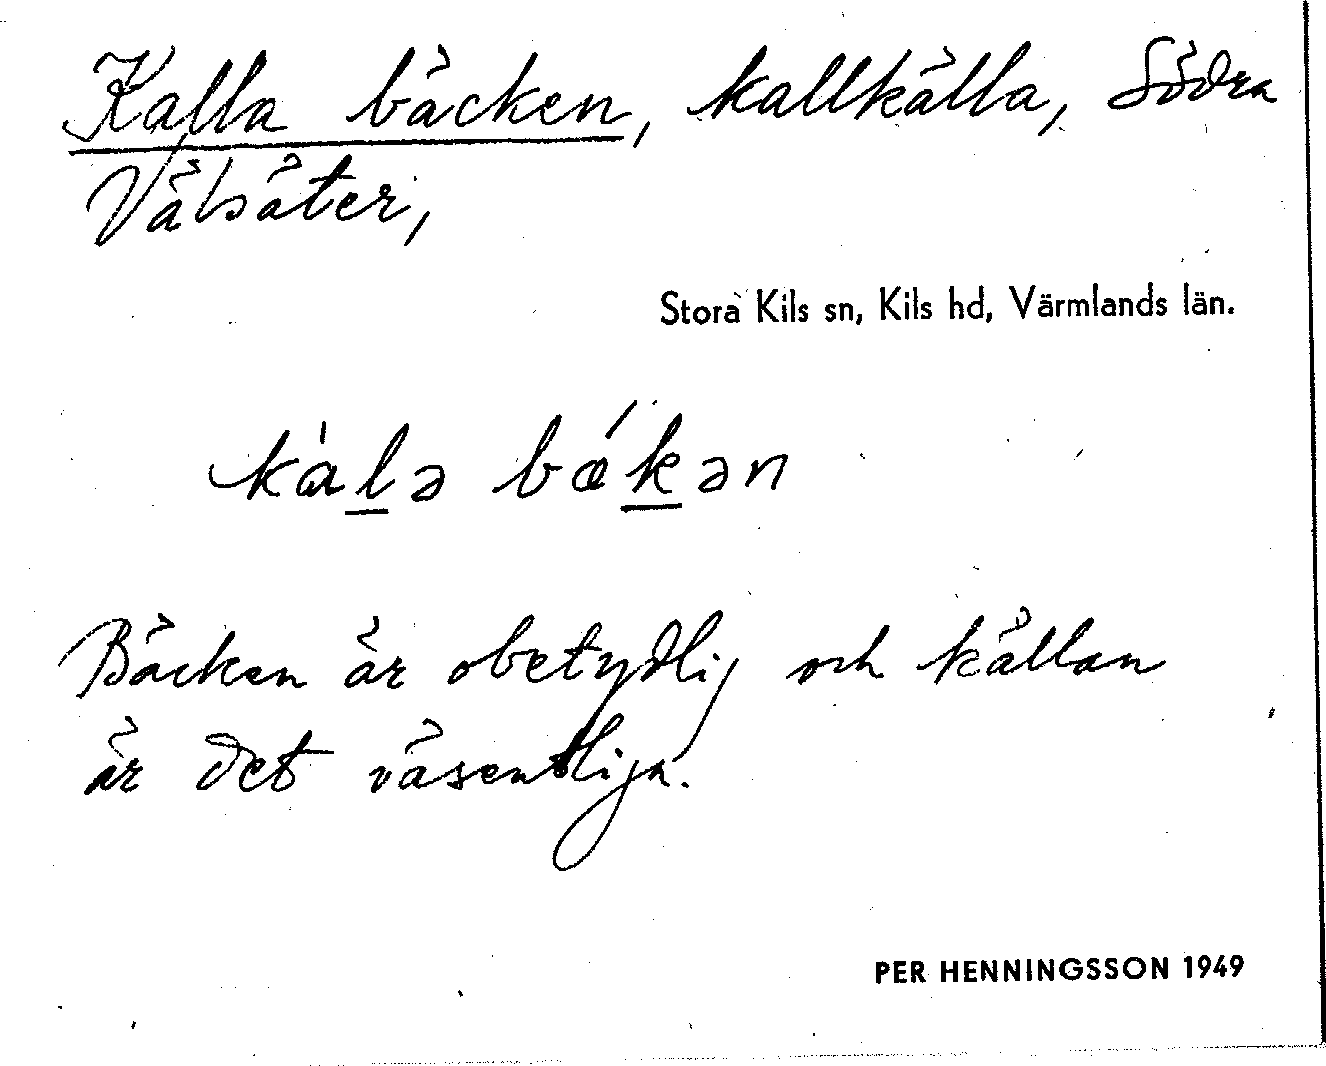 Kalla bäcken, kallkälla, Södra
Välsäter,
Stora Kils sn, Kils hd, Värmlands län.
kàlə bǽkən
Bäcken är obetydlig och källan
är det väsentliga.
PER HENNINGSSON 1949